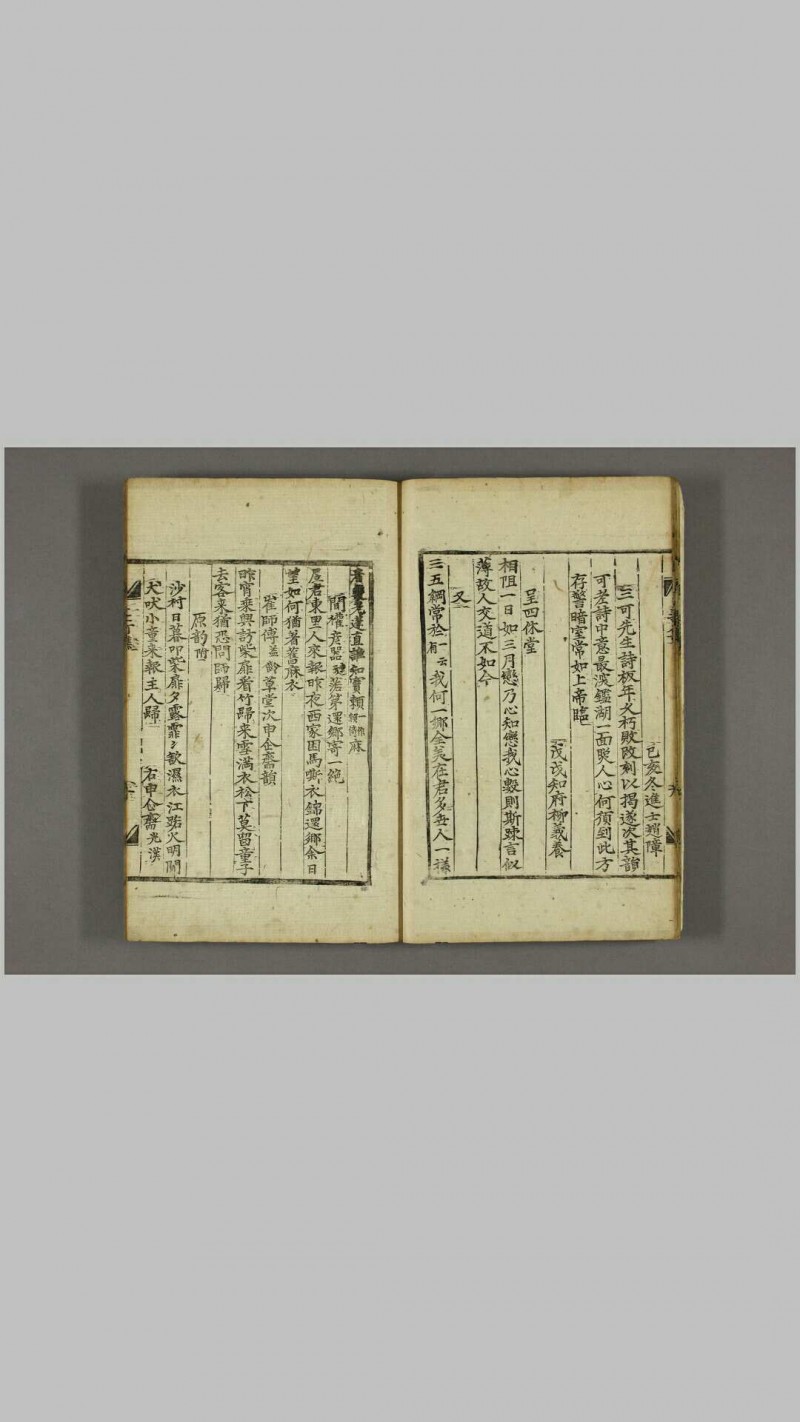 己亥冬進士趙障
三可先生詩板年久朽敗改刻以揭遂次其韻
可差詩中意最深鑑湖一面照人心何須到此方
存警暗室常如上帝臨
茂知府柳義養
呈四休堂
相阻一日如三月戀乃心知戀我心數則斯疎言似
薄故人交道不如今
又
三五綱常於一 我何一鄉全美在君多每人一樣
直誰知實類 麻
聞權彦器 落第還鄉寄一絶
屋君東里人來報昨夜西家困馬嘶衣錦還鄉余日
望如何猶着舊麻衣
崔師傅 餘草堂次申企齋韻
昨宵乘興訪柴扉看竹歸来雪滿衣松下莫留童子
去客来猶恐問師歸
原韵附
沙村日暮叩柴扉夕露霏霏欲濕衣江路火明聞
犬吠小童来報主人歸
右申企齋光漢